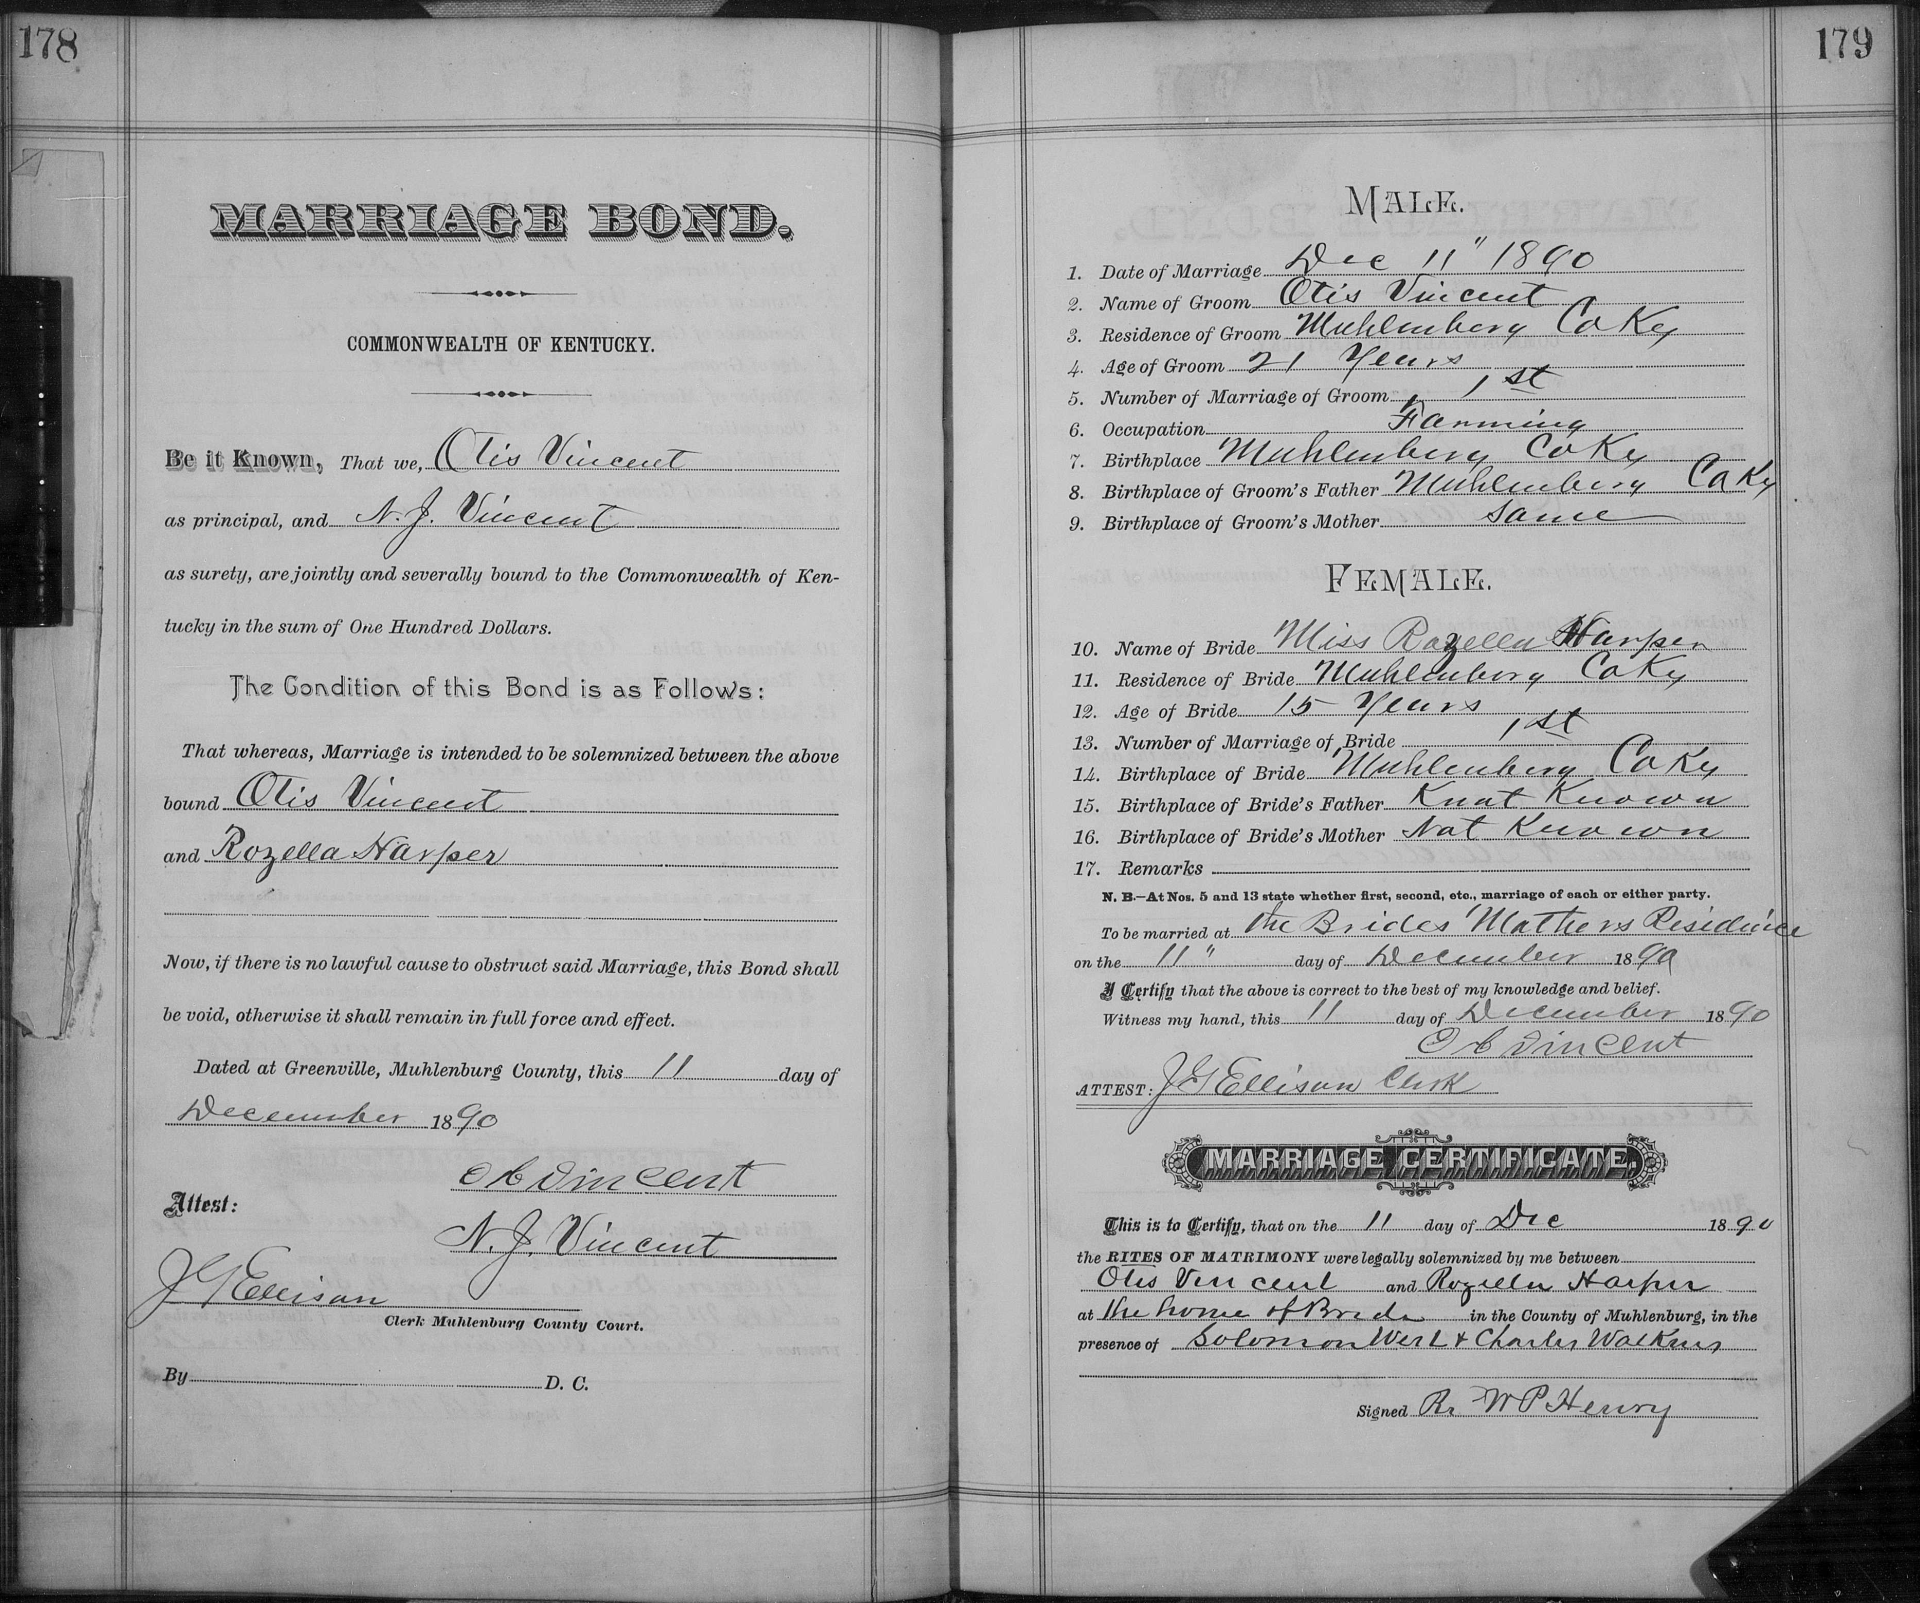 178
MARRIAGE BOND.
COMMONWEALTH OF KENTUCKY.
Be it Known, That we, Otis Vincent
as principal, and N. J. Vincent
as surety, are jointly and severally bound to the Commonwealth of Ken-
tucky in the sum of One Hundred Dollars.
The Condition of this Bond is as Follows:
That whereas, Marriage is intended to be solemnized between the above
bound Otis Vincent
and Rozella Harper
Now, if there is no lawful cause to obstruct said Marriage, this Bond shall
be void, otherwise it shall remain in full force and effect.
Dated at Greenville, Muhlenburg County, this 11 day of
December 1890
Vincent
Attest:
N. J. Vincent
J G Ellison
Clerk Muhlenburg County Court.
By D. C.
179
MALE.
1. Date of Marriage Dec 11" 1890
2. Name of Groom Otis Vincent
3. Residence of Groom Muhlenberg Co Ky
4. Age of Groom 21 Years
5. Number of Marriage of Groom 1st
6. Occupation Farming
7. Birthplace Muhlenberg Co Ky
8. Birthplace of Groom's Father Muhlenberg Co Ky
9. Birthplace of Groom's Mother Same
FEMALE.
10. Name of Bride Miss Rozella Harper
11. Residence of Bride Muhlenberg Co Ky
12. Age of Bride 15 Years
13. Number of Marriage of Bride 1st
14. Birthplace of Bride Muhlenberg Co Ky
15. Birthplace of Bride's Father Knot Known
16. Birthplace of Bride's Mother Not Known
17. Remarks
N. B.—At Nos. 5 and 13 state whether first, second, etc., marriage of each or either party.
To be married at the Brides Mothers Residence
on the 11" day of December 1890
I Certify that the above is correct to the best of my knowledge and belief.
Witness my hand, this 11 day of December 1890
Vincent
ATTEST: J G Ellison Clerk
MARRIAGE CERTIFICATE.
This is to Certify, that on the 11 day of Dec 1890
the RITES OF MATRIMONY were legally solemnized by me between
Otis Vincent and Rozella Harper
at the home of Bride in the County of Muhlenburg, in the
presence of Solomon West & Charles Walkins
Signed W P Henry